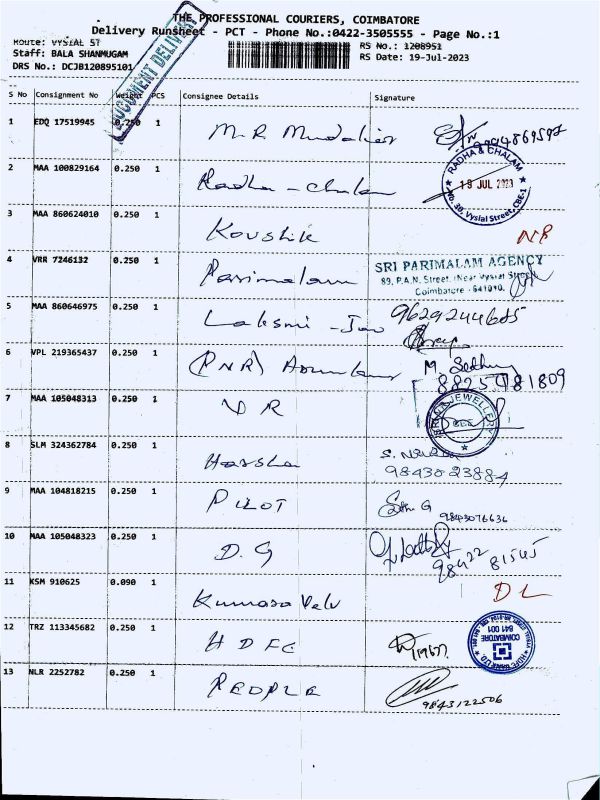 THE PROFESSIONAL COURIERS, COIMBATORE
Delivery Runsheet - PCT - Phone No.:0422-3505555 - Page No.:1
Route: VYSIAL ST
RS No.: 1208951
Staff: BALA SHANMUGAM
RS Date: 19-Jul-2023
DRS No.: DCJB120895101
DOCUMENT DELIVERY
S No Consignment No Weight PCS Consignee Details Signature
1 EDQ 17519945 0.250 1 M.R Mudaliar
2 MAA 100829164 0.250 1 Radha - Chalam
RADHA & CHALAM
19 JUL 2023
No. 30, Vysial Street, CBE-1
3 MAA 860624010 0.250 1 Koushik NB
4 VRR 7246132 0.250 1 Parimalam
SRI PARIMALAM AGENCY
89, P.A.N. Street, (Near Vysial Street),
Coimbatore - 641010.
5 MAA 860646975 0.250 1 Laksmi - 9629244685
6 VPL 219365437 0.250 1 (PNR) M.
8825481809
7 MAA 105048313 0.250 1 V R
JEWELLERY
8 SLM 324362784 0.250 1 Harsha S.
9843023884
9 MAA 104818215 0.250 1 PILOT G 9843076636
10 MAA 105048323 0.250 1 D.G
98422 81545
11 KSM 910625 0.090 1 Kumara Velu DL
12 TRZ 113345682 0.250 1 HDFC
COIMBATORE
641 001
13 NLR 2252782 0.250 1 PEOPLE 9843122506